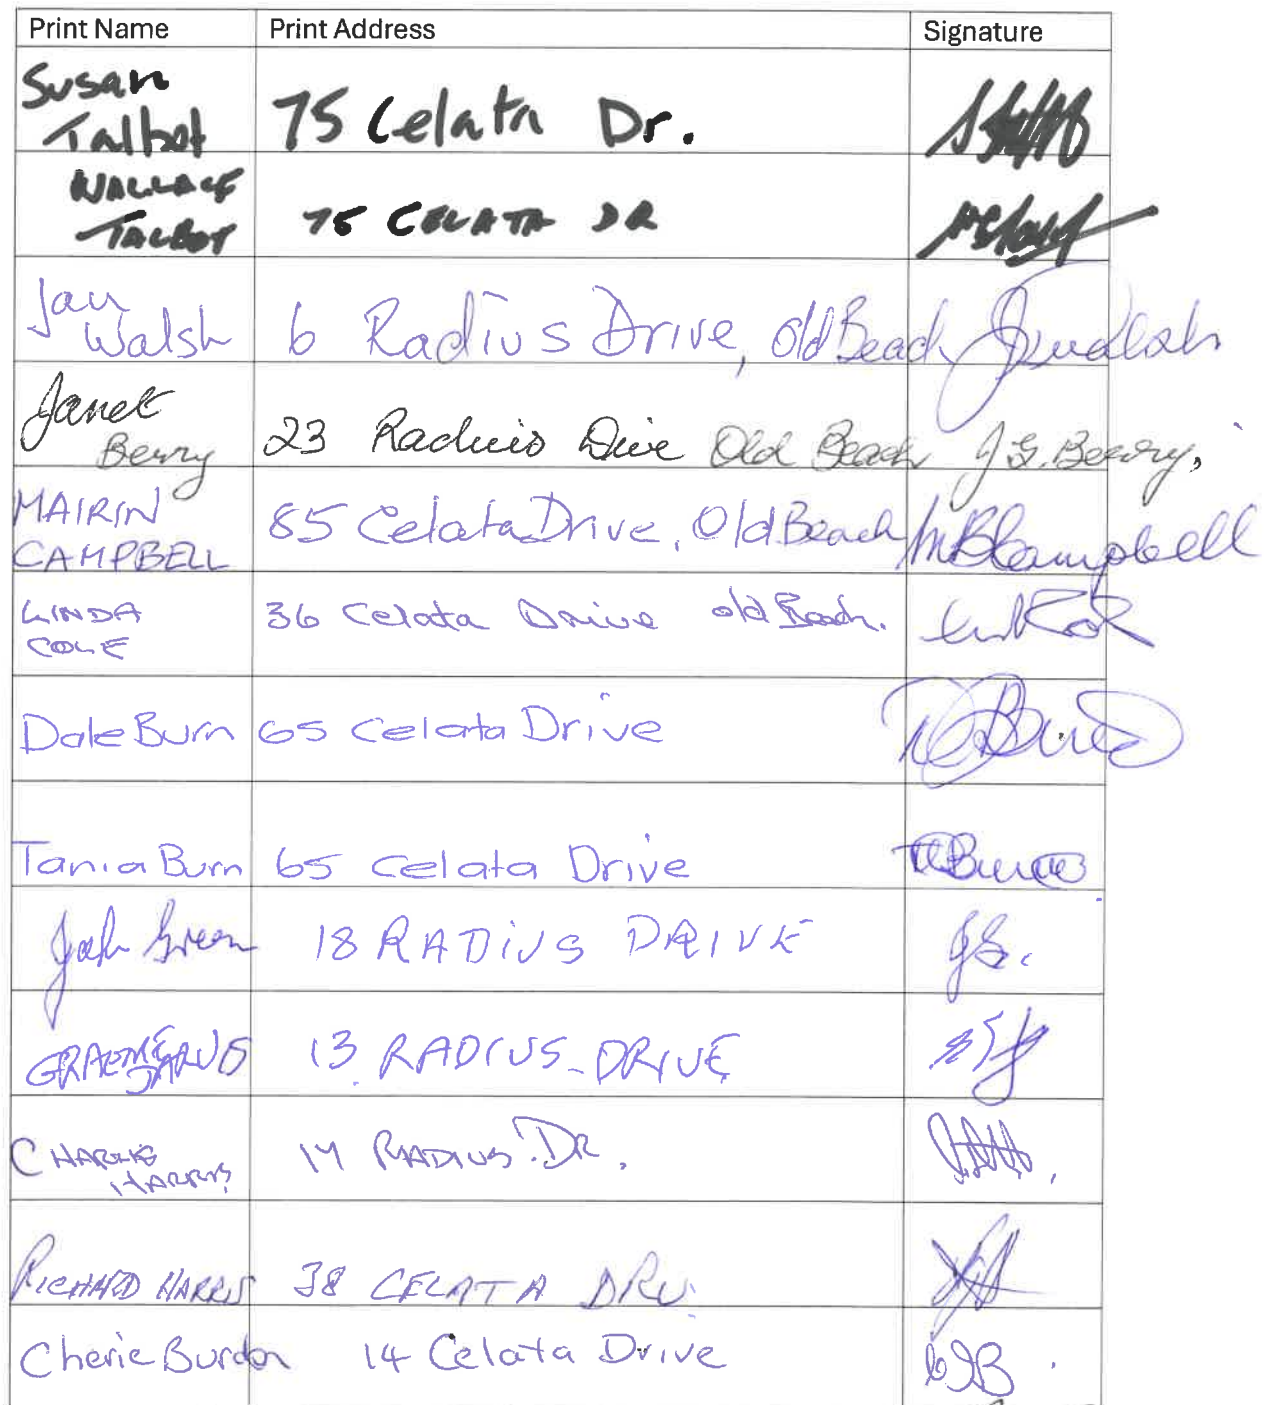 Print Name Print Address Signature
Susan
Talbot 75 Celata Dr.
WALLACE
TALBOT 75 CELATA DR
Jan
Walsh 6 Radius Drive, Old Beach
Janet
Berry 23 Radius Drive Old Beach J G. Berry,
MAIRIN
CAMPBELL 85 Celata Drive, Old Beach MBCampbell
LINDA
COLE 36 Celata Drive old Beach.
Dale Burn 65 Celata Drive
Tania Burn 65 Celata Drive
Josh Green 18 RADiUS DRIVE JG.
GRAEME
JARVIS 13 RADIUS DRIVE
CHARLIE
HARRIS 14 RADIUS DR.
RICHARD HARRIS 38 CELATA DRV.
Cherie Burdon 14 Celata Drive CJB